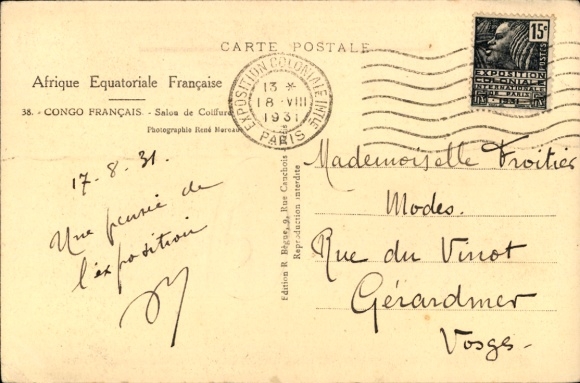 CARTE POSTALE
Afrique Equatoriale Française
38. - CONGO FRANÇAIS. - Salon de Coiffure
Photographie René Moreau
EXPOSITION COLONIALE INTle
13 *
18 VIII
1931
PARIS
15c
POSTES
EXPOSITION
COLONIALE
INTERNATIONALE
DE PARIS
1931
17-8-31.
Une pensée de
l'exposition
Edition R. Bègue, 9, Rue Cauchois
Reproduction interdite
Mademoiselle Froitier
Modes.
Rue du Vinot
Gérardmer
Vosges-